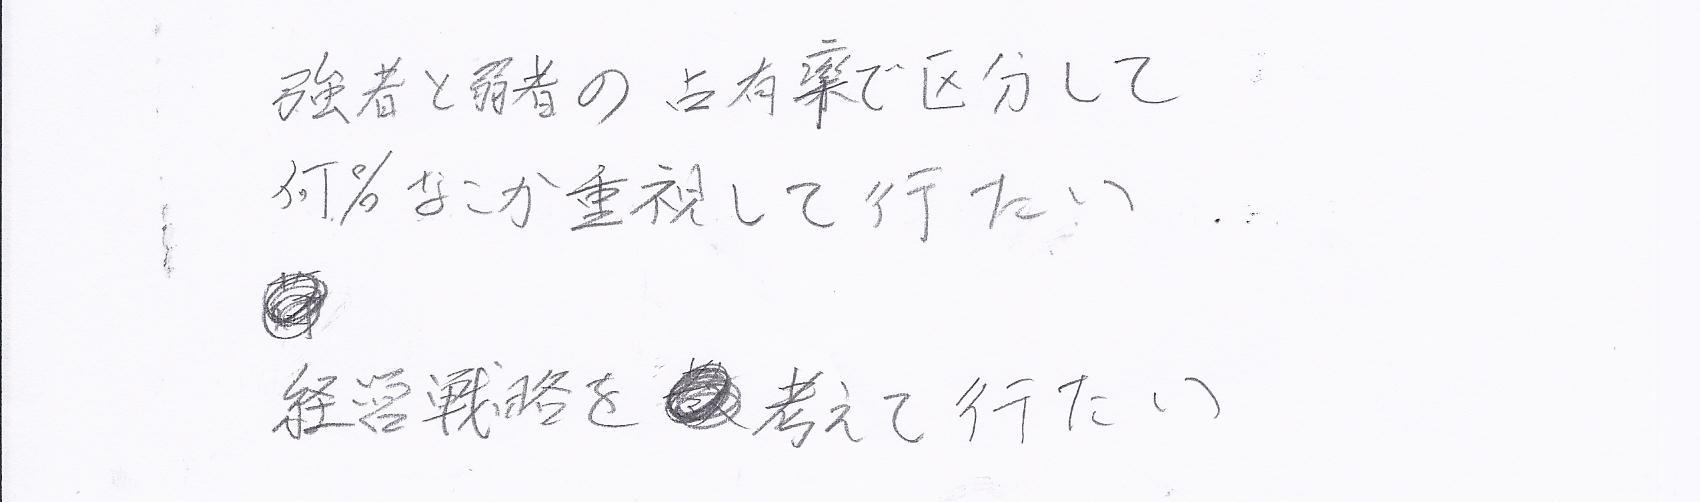 強者と弱者の占有率で区分して
何%なこか重視して行たい
経営戦略を考えて行たい